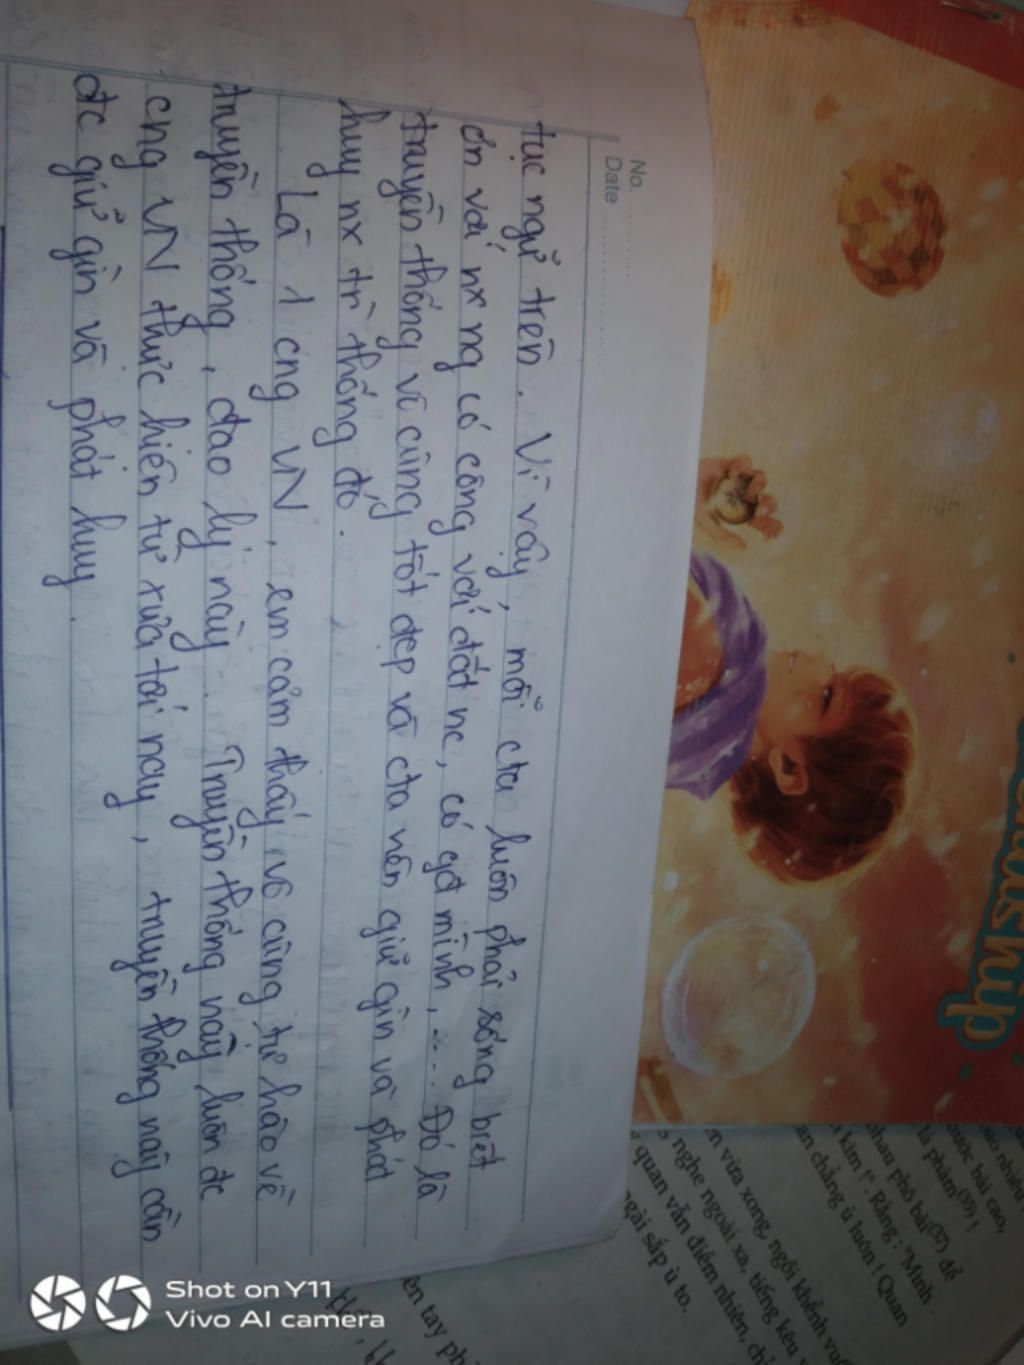 No.
Date
tục ngữ trên. Vì vậy, mỗi cta luôn phải sống biết
ơn với nx ng có công với đất nc, có gđ mình, .... Đó là
truyền thống vô cùng tốt đẹp và cta nên giữ gìn và phát
huy nx tr` thống đó.
Là 1 cng VN, em cảm thấy vô cùng tự hào về
truyền thống, đạo lý này. Truyền thống này luôn đc
cng VN thực hiện từ xưa tới nay, truyền thống này cần
đc giữ gìn và phát huy.
ndship
nhiêu
ước bài cao,
là phàm(35) !
nhau phô bài(37) để
kim !". Rằng: "Mình
an chẳng ù luôn ! Quan
vừa xong, ngồi khểnh vu
nghe ngoài xa, tiếng kêu
quan vẫn điềm nhiên, ch
ngài sắp ù to.
ên tay ph
Shot on Y11
Vivo AI camera